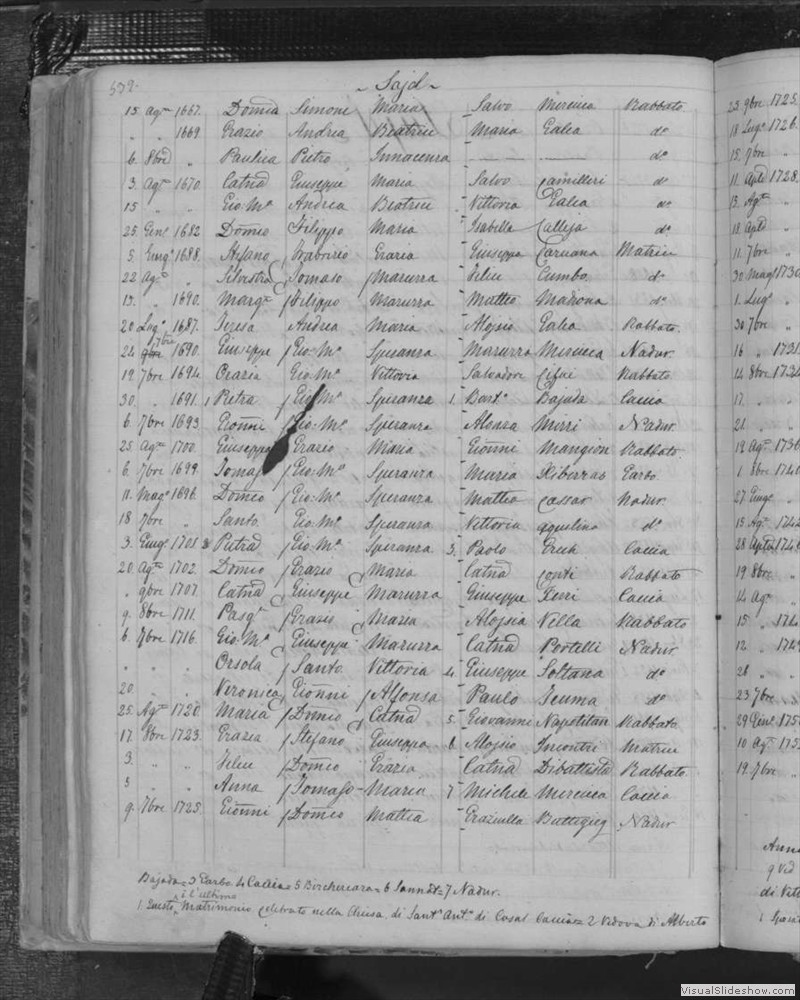 532. ~ Sajd ~
15 Agto 1667. Domca Simone Maria Salvo Mercieca Rabbato
" " 1669. Grazio Andrea Beatrice Maria Galea do
6. 8bre " Paulica Pietro Innocenza do
3. Agto 1670. Catna Giuseppe Maria Salvo Camilleri do
15 " " Gio: Ma Andrea Beatrice Vittoria Galea do
25 Gine 1682 Domco Filippo Maria Isabella Calleja do
5. Giugo 1688. Stefano Grazia Giuseppa Caruana Matrice
22 Ago " Silvestro Tomaso Maruzza Felice Cumbo do
13. " 1690. Margta Filippo Maruzza Matteo Madiona do
20 Lugo 1687. Teresa Andrea Maria Alojsio Galea Rabbato.
24 7bre 1690. Giuseppe Gio: Ma Speranza Maruzza Mercieca Nadur.
19 7bre 1694. Orazia Gio: Ma Vittoria Salvadore Cifai Rabbato
30. " 1691. 1 Pietra Gio: Ma Speranza 1. Barto Bajada Caccia
6. 7bre 1693 Gionni Gio: Ma Speranza Alonza Mizzi Nadur.
25 Agto 1700. Giuseppe Grazio Maria Gionni Mangion Rabbato.
6. 7bre 1699. Tomaso Gio: Ma Speranza Maria Xiberras Garbo.
11. Mago 1698. Domco Gio: Ma Speranza Matteo Cassar Nadur.
18 7bre " Santo. Gio: Ma Speranza Vittoria Aquilina do
3. Giugo 1701. 2 Petra Gio: Ma Speranza 3. Paolo Grech Caccia
20. Agto 1702. Domco Grazio Maria Catna Conti Rabbato
" 9bre 1707. Catna Giuseppe Maruzza Giuseppe Xerri Caccia
9. 8bre 1711. Pasqe Grazio Maria Alojsia Vella Rabbato
6. 7bre 1716. Gio: Ma Giuseppe Maruzza Catna Portelli Nadur
" " " Orsola Santo. Vittoria 4. Giuseppe Soltana do
20. " " Veronica Gionni Alfonsa Paulo Xcuma do
25. Agto 1720. Maria Domco Catna 5. Giovanne Napolitan Rabbato
17. 9bre 1723. Grazia Stefano Giuseppa 6. Alojsio Incontri Matrice
3. " " Felice Domco Grazia Catna Dibattista Rabbato
3 " " Anna Tomaso Maria 7 Michele Mercieca Caccia
9. 7bre 1725. Gionni Domco Mattia Graziulla Buttigieg Nadur
Bajada = 3 Garbo 4 Caccia = 5 Birchircara = 6 Sannat = 7 Nadur.
è l'ultimo
1. Questo Matrimonio celebrato nella Chiesa di Santo Anto di Casal Caccia = 2 Vedova di Alberto
25 9bre 1725.
18 Lugo 1726.
15. 7bre "
11. Aple 1728.
13. Agto "
18 Aple "
11. 7bre "
30 Mago 1730
1. Lugo "
30 7bre "
16 " 1731
14 8bre 1734
17. " "
21. " "
12 Agto 1736
1 8bre 1740
27 Giugo
15. Agto 1742
28 Aple 174
19 8bre "
14 Ago "
15 " 174
12. " 174
26 " "
23 7bre "
29 Gine 175
10 Ago 175
19. 7bre "
Anna
9 Ved
di Vit
VisualSlideshow.com